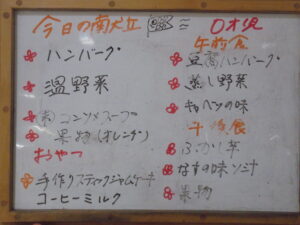 今日の献立
ハンバーグ
温野菜
コンソメスープ
果物(オレンヂ)
おやつ
手作りスティックジャムケーキ
コーヒーミルク
0才児
午前食
豆腐ハンバーグ
蒸し野菜
キャベツの味
午後食
ふかし芋
なすの味ソ汁
果物